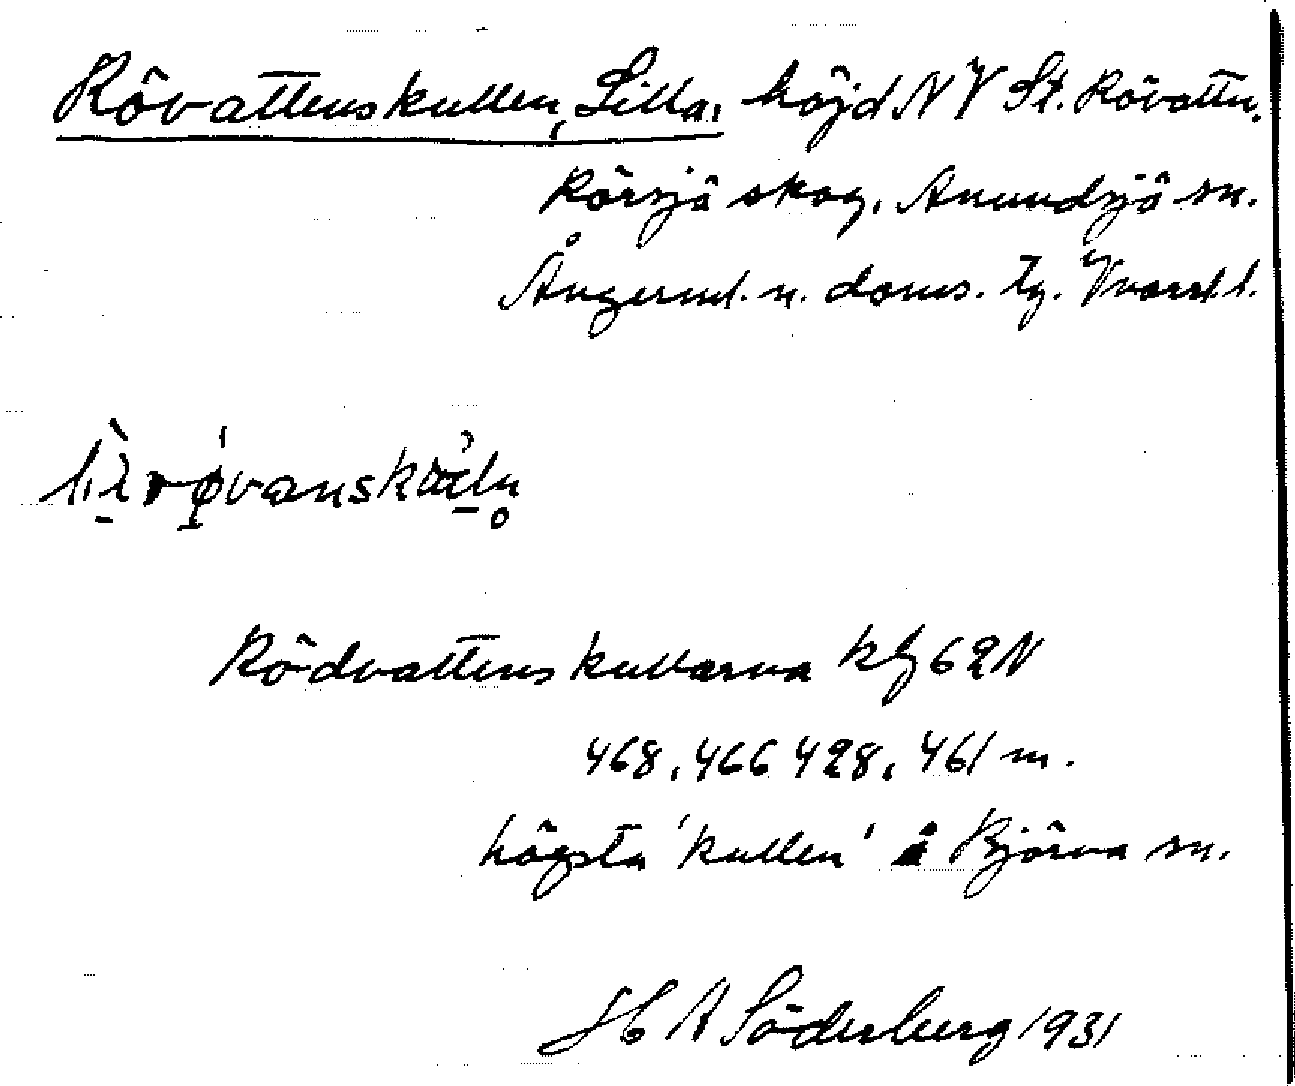 Rövattenskullen, Lilla, höjd NV St. Rövattn.
Rörsjö skog, Anundsjö sn.
Ångerml. n. doms. tg. Vnorrl. l.
Rödvattenskullarna kbl 62 N
468, 466 428, 461 m.
högsta 'kullen' å Björna sn.
H A Söderberg 1931